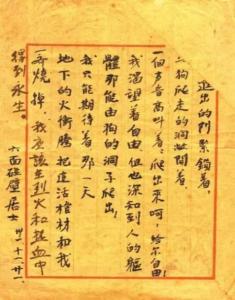 進出的門緊鎖着，
狗爬走的洞敞開着，
一個声音高叫着：爬出來呵，給尔自由！
我渴望着自由但也深知到人的軀
體那能由狗的洞子爬出！
我只能期待着那一天
地下的火衝騰把這活棺材和我
一齊燒掉，我應該在烈火和热血中
得到永生。
六面碰壁居士 卅一·十一·廿一·